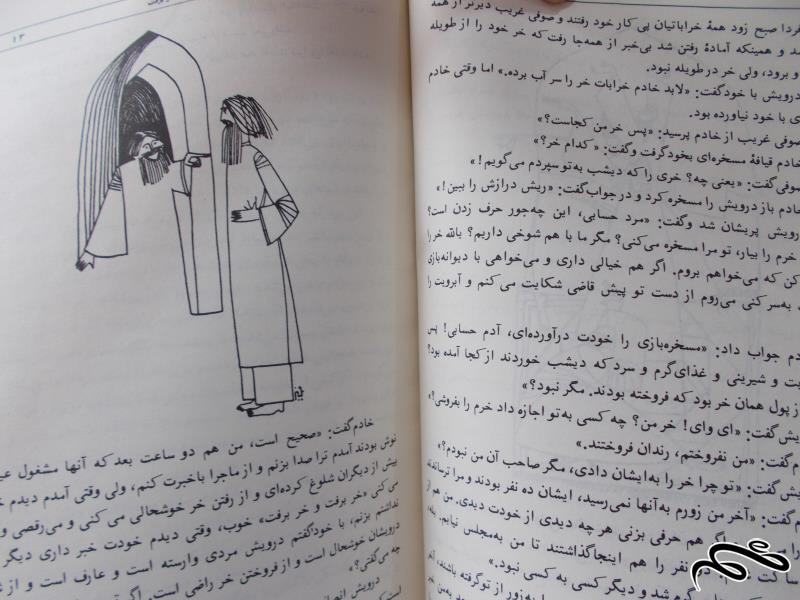 فردا صبح زود همهٔ خراباتیان پی کار خود رفتند و صوفی غریب دیرتر از همه
شد و همینکه آمادهٔ رفتن شد بی‌خبر از همه‌جا رفت که خر خود را از طویله
و برود، ولی خر در طویله نبود.
درویش با خودگفت: «لابد خادم خرابات خر را سر آب برده.» اما وقتی خادم
ی با خود نیاورده بود.
صوفی غریب از خادم پرسید: «پس خر من کجاست؟»
خادم قیافهٔ مسخره‌ای بخودگرفت وگفت: «کدام خر؟»
صوفی‌گفت: «یعنی چه؟ خری را که دیشب به‌تو سپردم می‌گویم!»
خادم باز درویش را مسخره کرد و در جواب‌گفت: «ریش درازش را ببین!»
درویش پریشان شد وگفت: «مرد حسابی، این چه‌جور حرف زدن است؟
خرم را بیار، تو مرا مسخره می‌کنی؟ مگر ما با هم شوخی داریم؟ یالله خر را
کن که می‌خواهم بروم. اگر هم خیالی داری و می‌خواهی با دیوانه‌بازی
به‌سر کنی می‌روم از دست تو پیش قاضی شکایت می‌کنم و آبرویت را
دم جواب داد: «مسخره‌بازی را خودت درآورده‌ای، آدم حسابی! پس
ت و شیرینی و غذای‌گرم و سرد که دیشب خوردند از کجا آمده بود؟
از پول همان خر بود که فروخته بودند. مگر نبود؟»
یش‌گفت: «ای وای! خر من؟ چه کسی به‌تو اجازه داد خرم را بفروشی؟»
م‌گفت: «من نفروختم، رندان فروختند.»
یش‌گفت: «تو چرا خر را به‌ایشان دادی، مگر صاحب آن من نبودم؟»
گفت: «آخر من زورم به‌آنها نمی‌رسید، ایشان ده نفر بودند و مرا ترساندند
هم حرفی بزنی هر چه دیدی از خودت دیدی. من هم از
نفر را هم اینجاگذاشتند تا من به‌مجلس نیایم. بله،
گم شد و دیگر کسی به کسی نبود.»
به‌زور از توگرفته باشند، آخر
۱۳
خادم‌گفت: «صحیح است، من هم دو ساعت بعد که آنها مشغول عی
نوش بودند آمدم ترا صدا بزنم و از ماجرا باخبرت کنم، ولی وقتی آمدم دیدم خ
بیش از دیگران شلوغ کرده‌ای و از رفتن خر خوشحالی می کنی و می‌رقصی و
می کنی «خر برفت و خر برفت» خوب، وقتی دیدم خودت خبر داری دیگر
نداشتم بزنم، با خودگفتم درویش مردی وارسته است و عارف است و از ش
درویشان خوشحال است و از فروختن خر راضی است. اگر تو
چه می‌گفتی؟»
درویش